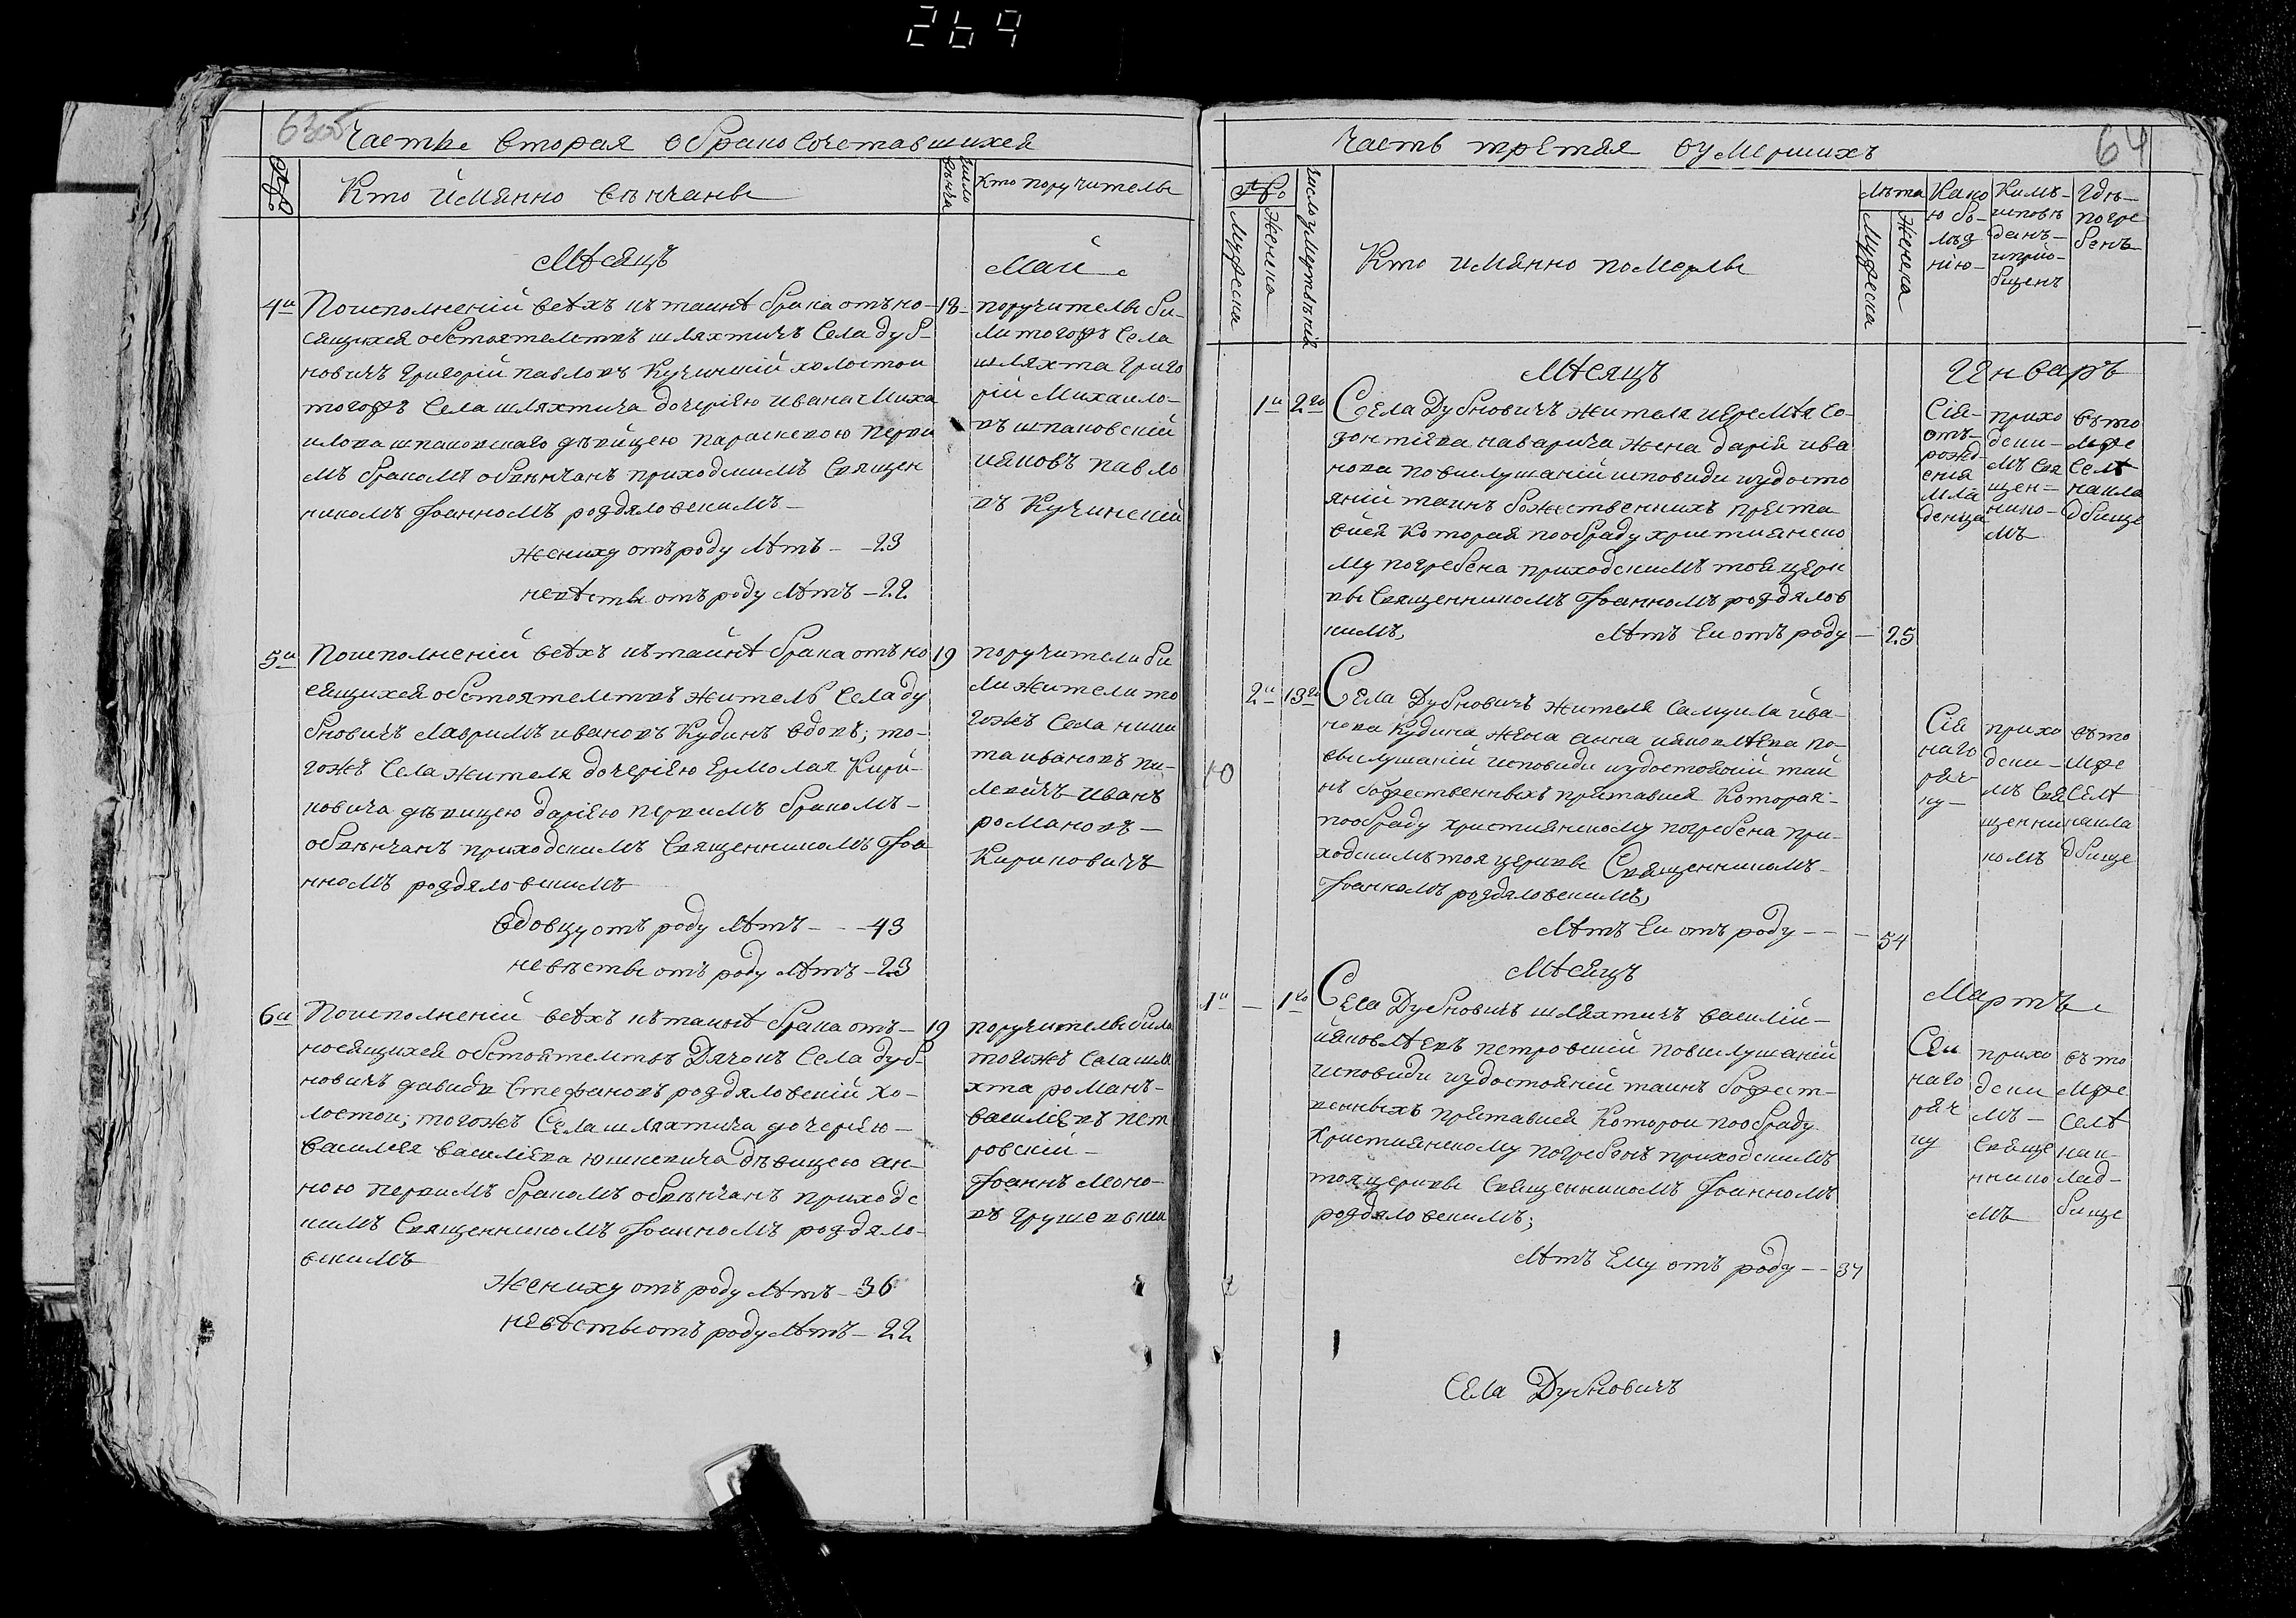 269
63об
Часть вторая обракосочетавшихся
№
Кто имянно вѣнчаны
число вѣнча
Кто поручителы
Мѣсяцъ
Май
4й
Поисполненій всѣхъ къ таинѣ брака отъно-
сящихся обстоятелствъ шляхтичъ Села Дуб-
новичъ Григорій павловъ Кучинскій холостои
тогожъ Села шляхтича дочерію ивана Миха
илова шпаковскаго дѣвицею параскевою первы
мъ бракомъ обвѣнчанъ приходскимъ Священ
никомъ Іоанномъ роздяловскимъ
жениху отъ роду лѣтъ - 23
невѣсты отъ роду лѣтъ - 22
18
поручителы бы-
ли тогожъ Села
шляхта Григо
рій Михаило-
въ шпаковскій
иаковъ павло
въ Кучинскій
5й
Поисполненій всѣхъ къ таинѣ брака отъно
сящихся обстоятелствъ житель Села Ду
бновичъ лавримъ ивановъ Кудинъ вдовъ; то-
гожъ Села жителя дочерію Ермолая Кири-
ковича дѣвицею даріею первимъ бракомъ-
обвѣнчанъ приходскимъ Священникомъ Іоа
нномъ роздяловскимъ
вдовцу отъ роду лѣтъ - - - 43
невѣсты отъ роду лѣтъ - 23
19
поручители бы
ли жители то
гожъ Села ники
та ивановъ
иванъ
романовъ
Кириковичъ
6й
Поисполненій всѣхъ къ таинѣ брака отъ-
носящихся обстоятелствъ Дячокъ Села Дуб-
новичъ давидъ Стефановъ роздяловскій хо-
лостои; тогожъ Села шляхтича дочерію-
василія василіева юшкевича дѣвицею ан-
ною первимъ бракомъ обвѣнчанъ приходс
кимъ Священникомъ Іоанномъ роздяло-
вскимъ
Жениху отъ роду лѣтъ - 36
невѣсты отъ роду лѣтъ - 22
19
поручителы были
тогожъ Села шля
хта романъ-
василевъ пет
ровскій-
Іоаннъ
въ Грушевскій
64
Часть третяя оумершихъ
№
Мужеска
Женска
число умертвій
Кто имянно померлы
Лѣта
Мужеска
Женска
Како
ю бо-
лѣз
нію-
Кимъ-
исповѣ
данъ-
и прио-
бщенъ
Гдѣ-
погре
бенъ
Мѣсяцъ
Инваръ
1й
2го
Села Дубновичъ жителя иеремѣя Со-
зонтіева наварича жена дарія ива
нова повыслушаній исповиди иудосто
яній таинъ божественнихъ преста
вися Которая пообраду християнско
му погребена приходскимъ тоя церк
вы Священникомъ Іоанномъ роздялов
кимъ,
лѣтъ Еи отъ роду
25
Сія-
отъ-
рожд
енія
мла
денца
прихо
дски-
мъ Свя
щен-
нико-
мъ
въ то
мже
Селѣ
накла
дбище
2й
13го
Села Дубновичъ жителя Самуила ива-
нова Кудина жена анна иаковлѣва по-
выслушаній исповиди иудостояній тай
нъ божественныхъ преставися Которая-
пообраду християнскому погребена при-
ходскимъ тоя церквы Священникомъ
Іоанномъ роздяловскимъ,
лѣтъ Еи отъ роду
54
Сія
наго
ряч
ку-
прихо
дски-
мъ Свя
щенни
комъ
въ то
мже
Селѣ
накла
дбище
Мѣсяцъ
Мартъ
1й
1го
Села Дубновичъ шляхтичъ василій-
иаковлѣвъ петровскій повыслушаній
исповиди иудостояній таинъ божест-
венныхъ преставися Которои пообраду
Християнскому погребенъ приходскимъ
тоя церквы Священникомъ Іоанномъ
роздяловскимъ;
лѣтъ Ему отъ роду
37
Сеи
наго
ряч
ку
прихо
дски
мъ-
Свяще
ннико
мъ
въ то
мже
селѣ
нак-
лад-
бище
Села Дубновичъ